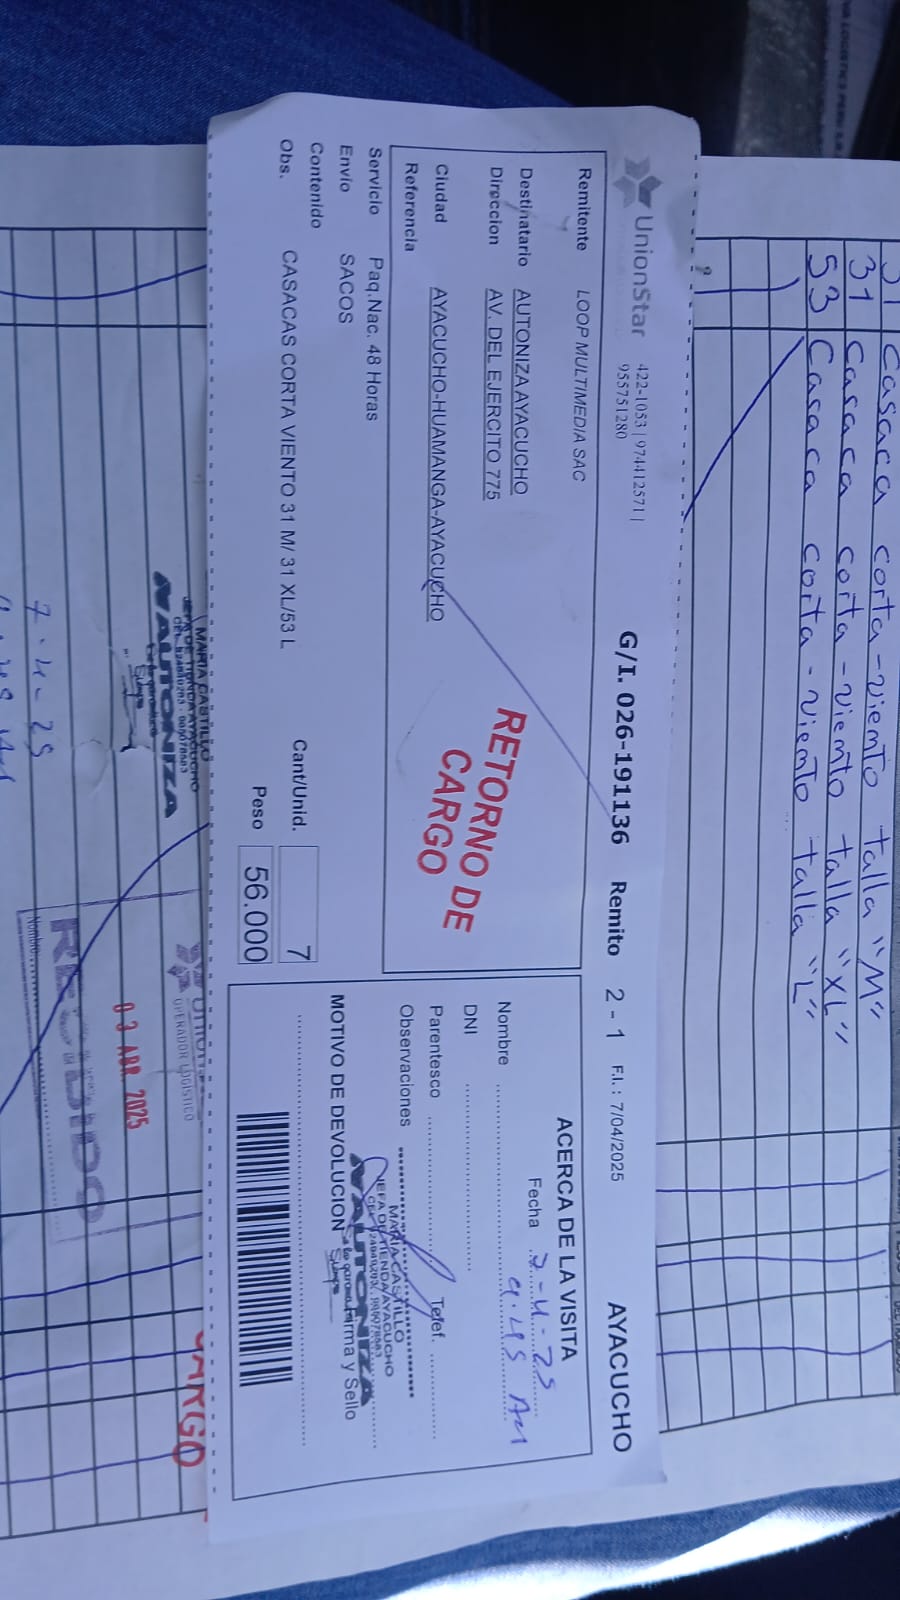 31 Casaca corta-viento talla "M"
31 Casaca corta-viento talla "XL"
53 Casaca corta-viento talla "L"
UnionStar
422-1053 | 974412571 |
955751280
G/I. 026-191136 Remito 2 - 1 F.I.: 7/04/2025 AYACUCHO
Remitente LOOP MULTIMEDIA SAC
Destinatario AUTONIZA AYACUCHO
Direccion AV. DEL EJERCITO 775
Ciudad AYACUCHO-HUAMANGA-AYACUCHO
Referencia
RETORNO DE
CARGO
Servicio Paq.Nac. 48 Horas
Envio SACOS
Contenido
Cant/Unid. 7
Obs. CASACAS CORTA VIENTO 31 M/ 31 XL/53 L
Peso 56.000
ACERCA DE LA VISITA
Fecha 7-4-25
9:45 AM
Nombre
DNI
Parentesco Telef.
Observaciones
MARIA CASTILLO
JEFA DE TIENDA AYACUCHO
AUTONIZA
MOTIVO DE DEVOLUCION Firma y Sello
MARIA CASTILLO
JEFA DE TIENDA AYACUCHO
AUTONIZA
OPERADOR LOGISTICO
03 ABR. 2025
Nombre:
CARGO
7-4-25